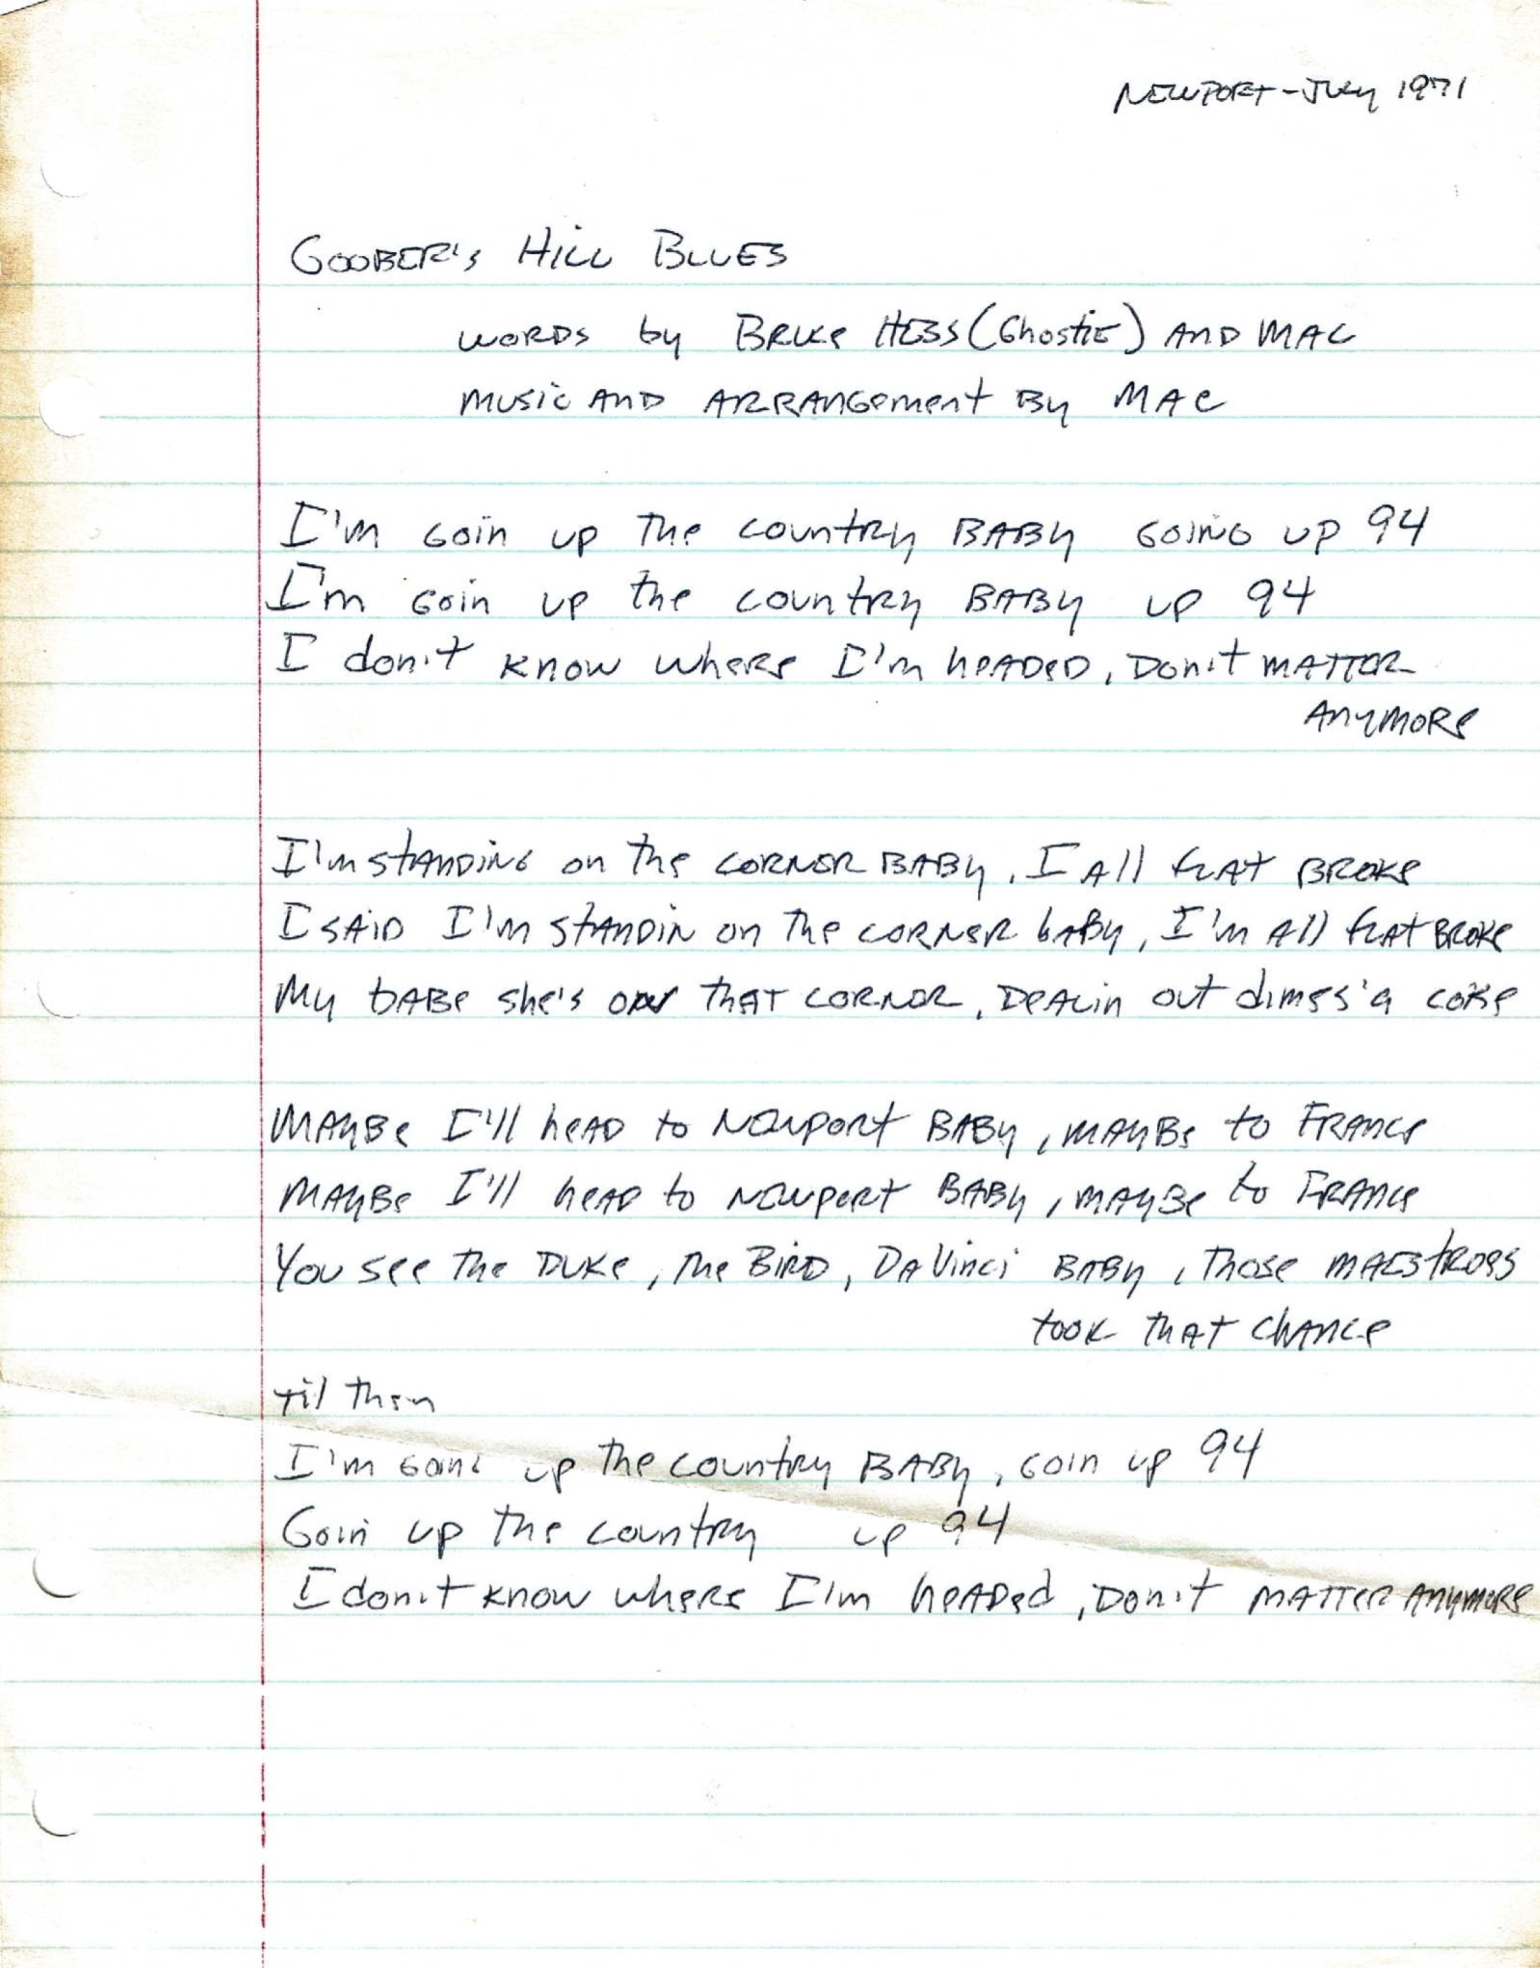 NEWPORT - July 1971
GOOBER'S HILL BLUES
WORDS by BRUCE HESS (Ghostie) AND MAC
MUSIC AND ARRANGEMENT BY MAC
I'm goin up the country BABY GOING UP 94
I'm goin up the country BABY up 94
I don't know where I'm headed, Don't MATTER
ANYMORE
I'm standing on the CORNER BABY, I All flat BROKE
I SAID I'm standin on the CORNER baby, I'm All flat BROKE
My babe she's on that CORNER, Dealin out dimes 'a coke
MAYBE I'll head to Newport BABY, MAYBE to FRANCE
MAYBE I'll head to Newport BABY, MAYBE to FRANCE
You see the DUKE, the BIRD, Da Vinci BABY, those MAESTROES
took that chance
til then
I'm going up the country BABY, goin up 94
Goin up the country up 94
I don't know where I'm headed, Don't MATTER ANYMORE